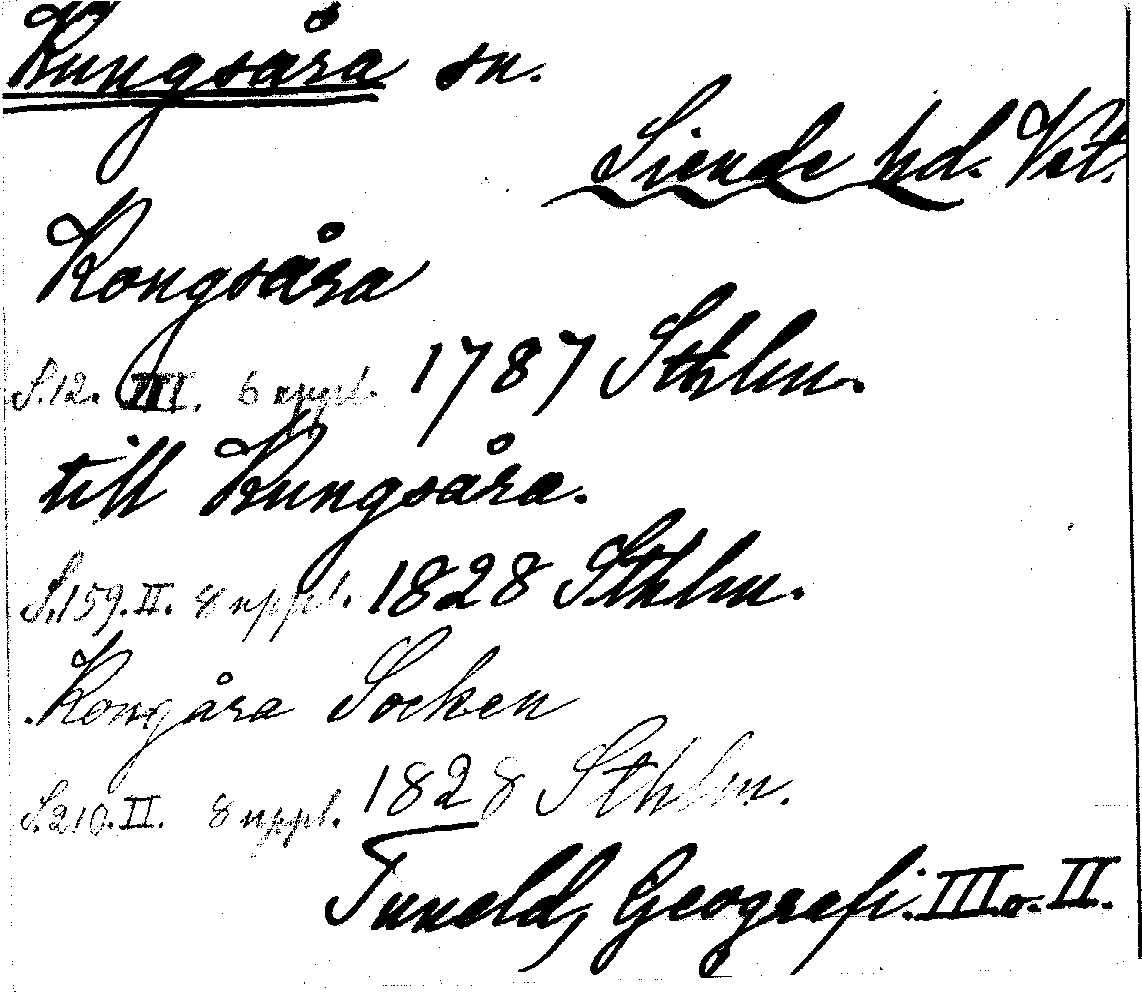 Kungsåra sn.
Siende hd. Vst.
Kongsåra
S.12. III. 6 uppl. 1787 Sthlm.
till Kungsåra.
S.159. II. 8 uppl. 1828 Sthlm.
Kongåra Socken
S.210. II. 8 uppl. 1828 Sthlm.
Tuneld, Geografi. III o. II.